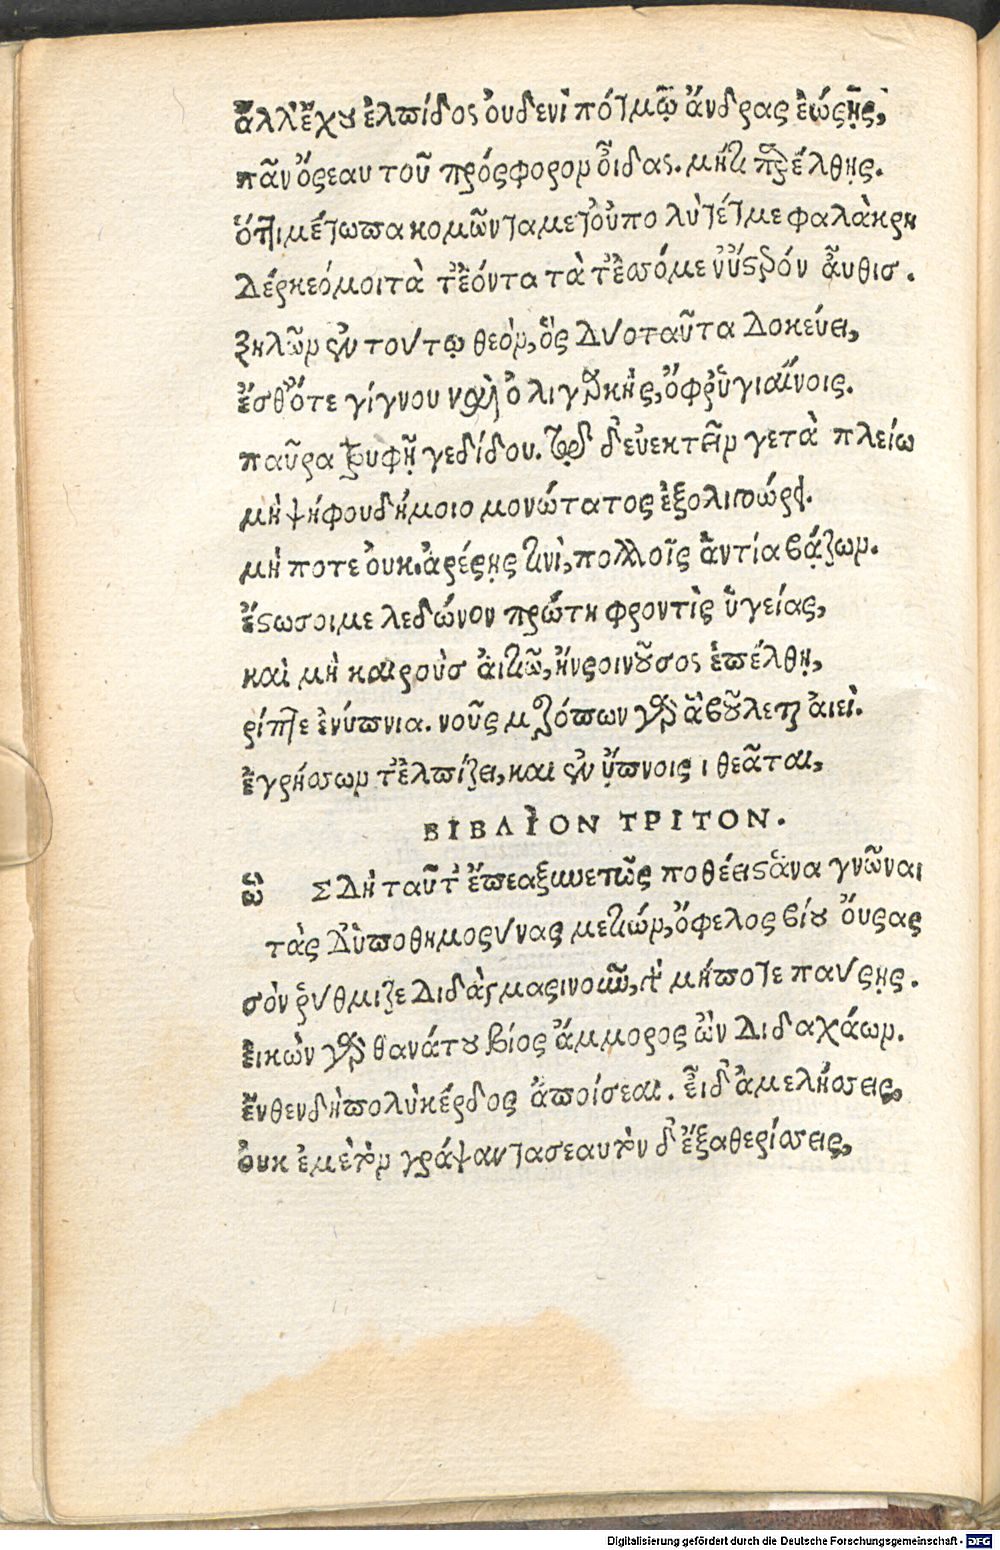 ἄλλ' ἔχου ἐλπίδος οὐδενὶ πότμῳ ἄνδρας ἐώσῃς,
πᾶν ὅσεαυτοῦ πρόσφορον οἶδας. μήτι πρεέλθης.
ὅττι μέτωπα κομῶντα μετ οὐπολὺ τέτμε φαλάκρη
Δέρκεό μοι τὰ τ' ἐόντα τὰ τ' ἐσόμεν' ὕστερόν αὖθισ.
ζηλῶν σὺν τούτῳ θεὸν, ὃς δύο ταῦτα δοκεύει,
ἔσθ' ὅτε γίγνου καὶ ὀλιγαρκὴς, ὄφρ' ὑγιαίνοις.
παῦρα τρυφῇ γε δίδου. τῷδ δ' εὐεκτεῖν γε τὰ πλείω
μὴ ψήφου δήμοιο μονώτατος ἐξολιπώρει.
μή ποτε οὐκ. ἀρέσῃς τινὶ, πολλοῖς ἀντία βάζων.
ἔστω σοι μελεδώνον πρώτη φροντὶς ὑγείας,
καὶ μὴ καιροὺσ ἀιτιῶ, ἤν νοῦσος ἐπέλθῃ,
ρίπτε ἐνύπνια. νοῦς μερόπων γὰρ ἃ βούλεται ἀιεὶ.
ἐγρήσσων τ' ἐλπίζει, καὶ σὺν ὕπνοις ι θεᾶται,
ΒΙΒΛΙΟΝ ΤΡΙΤΟΝ.
ὦ Σ Δὴ ταῦτ' ἔπεα ξυνετῶς ποθέεις ἀναγνῶναι
τὰς δ' ὑποθημοσύνας μετιὼν, ὄφελος βίου οὔσας
σὸν ῥύθμιζε διδάγμασι νοῦν, καὶ μήποτε παύσῃς.
ἐικὼν γὰρ θανάτου βίος ἄμμορος ὢν διδαχάων.
ἔνθεν δὴ πολὺ κέρδος ἀποίσεαι. ἐι δ' ἀμελήσεις,
ὀυκ ἐμὲ τὸν γράψαντα σεαυτὸν δ' ἐξαθερίσσεις,
Digitalisierung gefördert durch die Deutsche Forschungsgemeinschaft - DFG